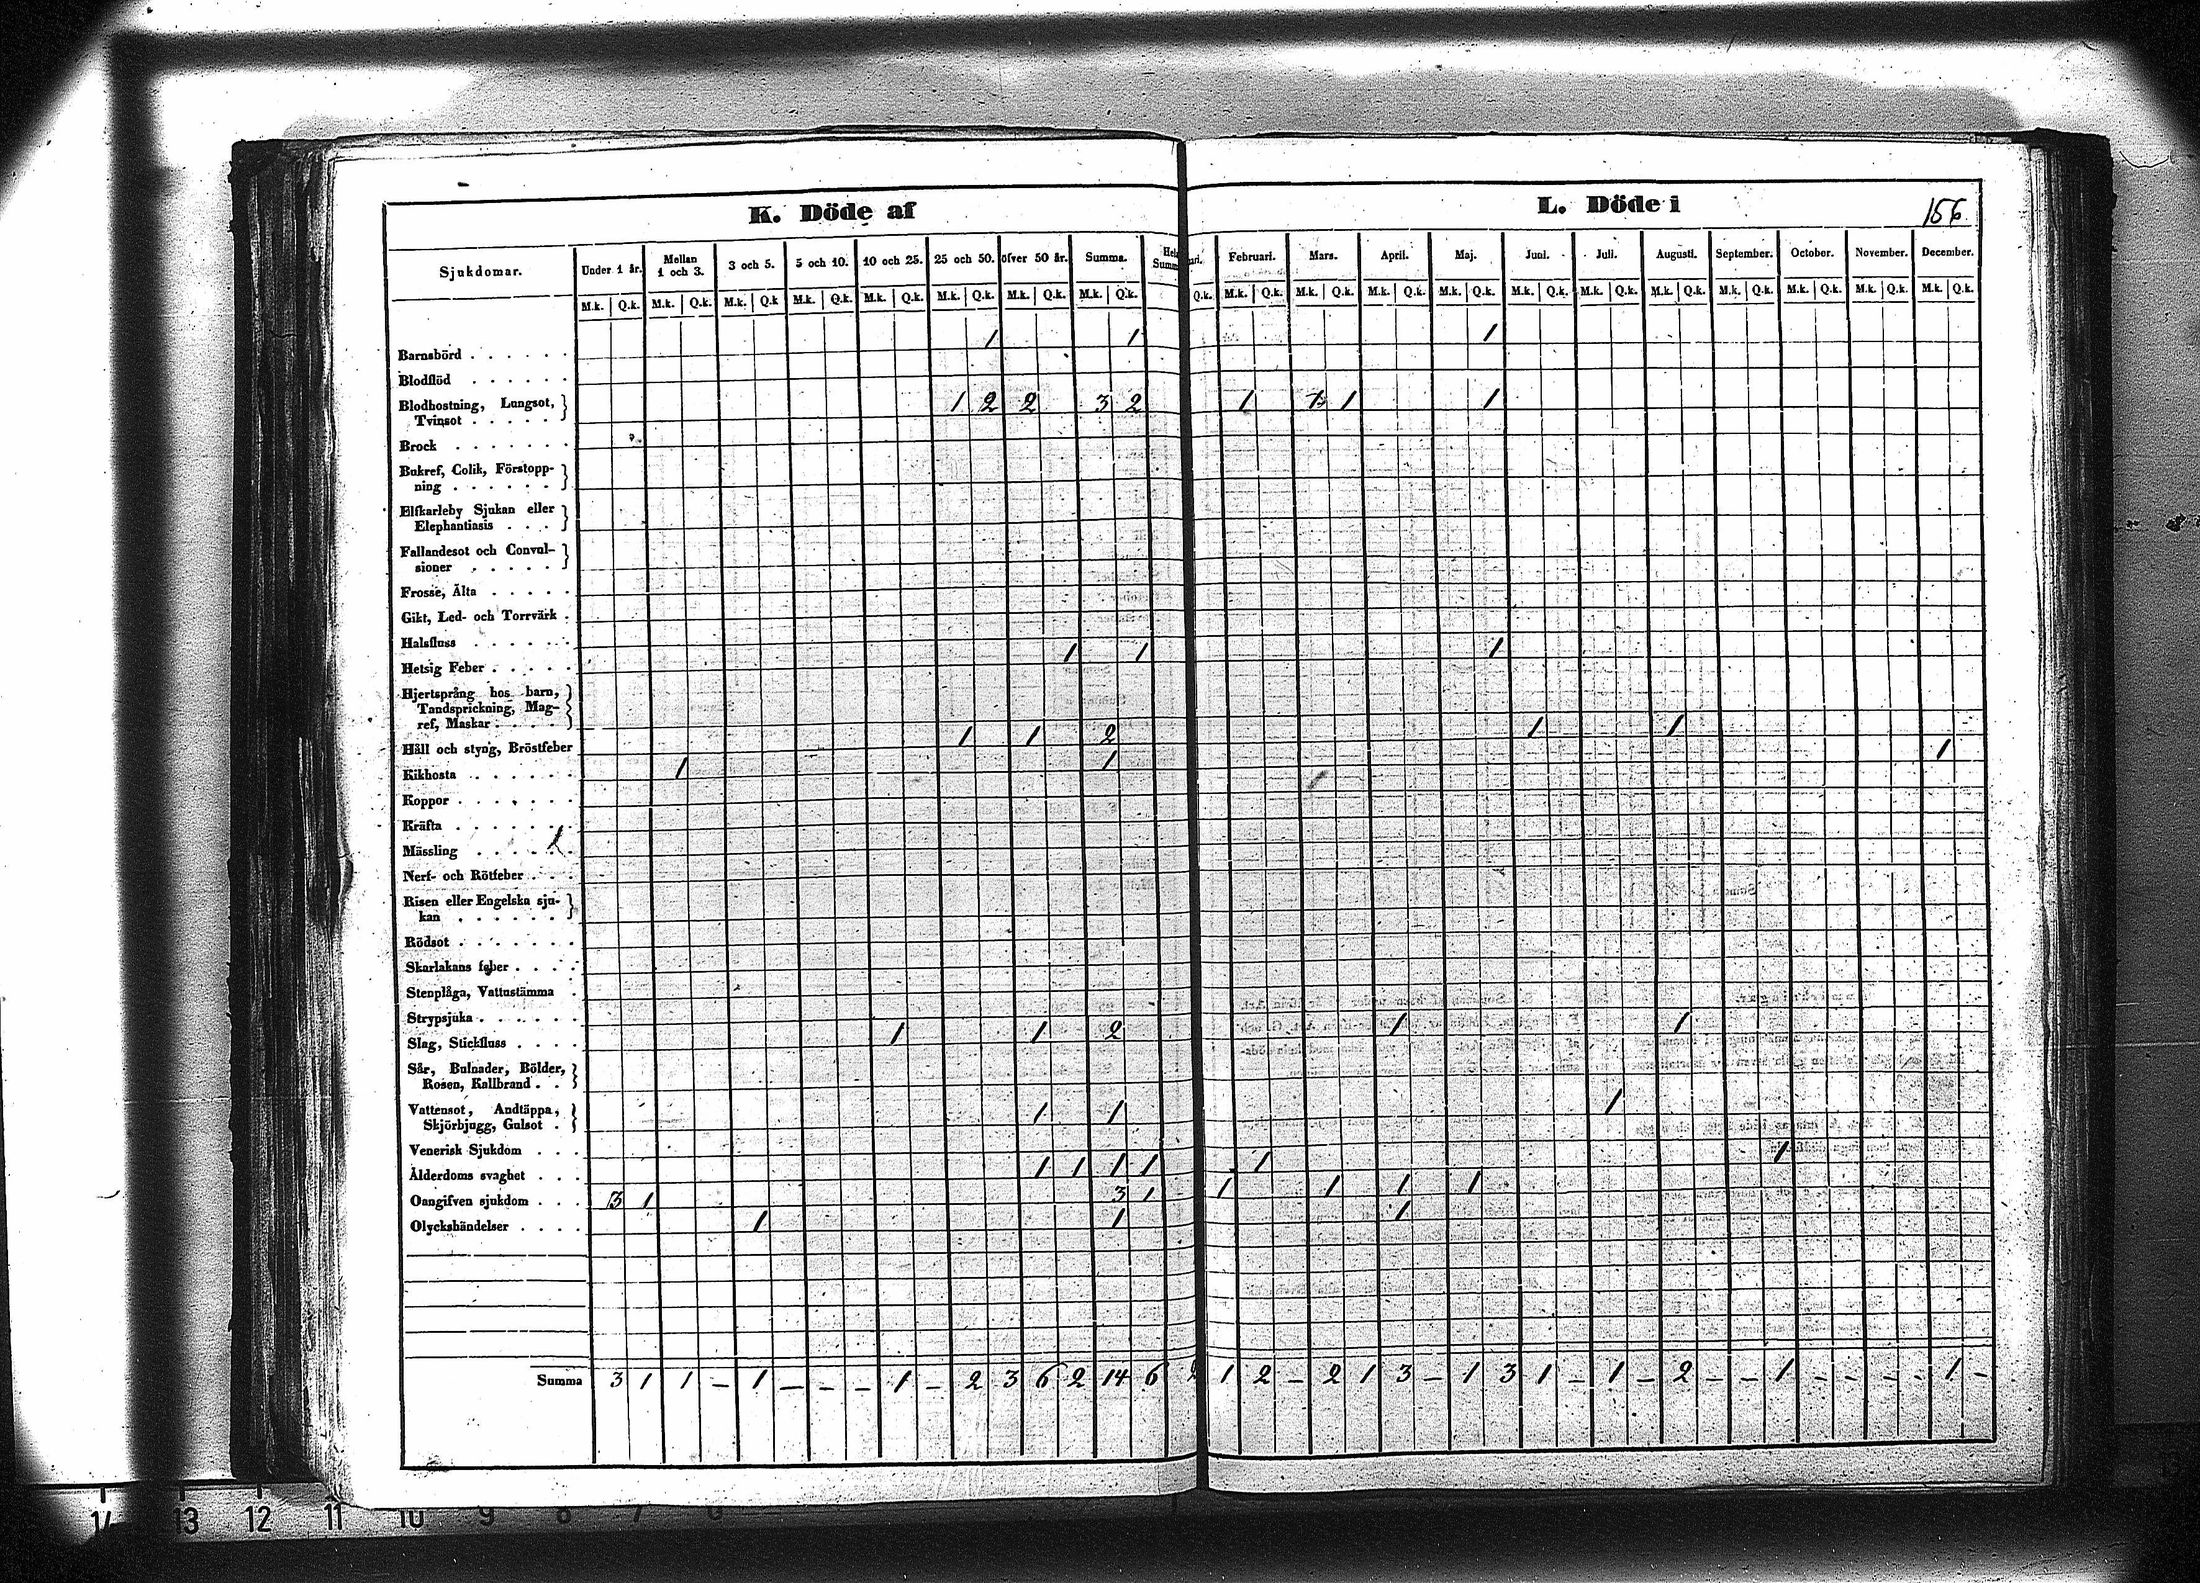 K. Döde af
L. Döde i
156.
Sjukdomar. Under 1 år. Mellan 1 och 3. 3 och 5. 5 och 10. 10 och 25. 25 och 50. öfver 50 år. Summa. Februari. Mars. April. Maj. Juni. Juli. Augusti. September. October. November. December.
M.k. Q.k. M.k. Q.k. M.k. Q.k M.k. Q.k. M.k. Q.k. M.k. Q.k. M.k. Q.k. M.k. Q.k. Q.k. M.k. Q.k. M.k. Q.k. M.k. Q.k. M.k. Q.k. M.k. Q.k. M.k. Q.k. M.k. Q.k. M.k. Q.k. M.k. Q.k. M.k. Q.k. M.k. Q.k.
Barnsbörd . . . . . . 1 1 1
Blodflöd . . . . . .
Blodhostning, Lungsot,
Tvinsot . . . . . 1 2 2 3 2 1 1 1
Brock . . . . . . .
Bukref, Colik, Förstopp-
ning . . . . . .
Elfkarleby Sjukan eller
Elephantiasis . . .
Fallandesot och Convul-
sioner . . . . .
Frosse, Älta . . . . .
Gikt, Led- och Torrvärk .
Halsfluss . . . . . .
Hetsig Feber . . . . . 1 1 1
Hjertsprång hos barn,
Tandsprickning, Mag-
ref, Maskar . . . .
Håll och styng, Bröstfeber 1 1 2 1 1
Kikhosta . . . . . . 1 1 1
Koppor . . . . . . .
Kräfta . . . . . . .
Mässling . . . . . .
Nerf- och Rötfeber . . .
Risen eller Engelska sju-
kan . . . . . .
Rödsot . . . . . . .
Skarlakans feber . . . .
Stenplåga, Vattnstämma .
Strypsjuka . . . . . .
Slag, Stickfluss . . . . 1 1 2 1 1
Sår, Bulnader, Bölder,
Rosen, Kallbrand . .
Vattensot, Andtäppa,
Skjörbjugg, Gulsot . 1 1 1
Venerisk Sjukdom . . .
Ålderdoms svaghet . . . 1 1 1 1 1 1
Oangifven sjukdom . . . 3 1 3 1 1 1 1 1
Olyckshändelser . . . . 1 1 1
Summa 3 1 1 – 1 – – – 1 – 2 3 6 2 14 6 2 1 2 – 2 1 3 – 1 3 1 – 1 – 2 – – 1 – – – – 1 –
14 13 12 11 10 9 8 7